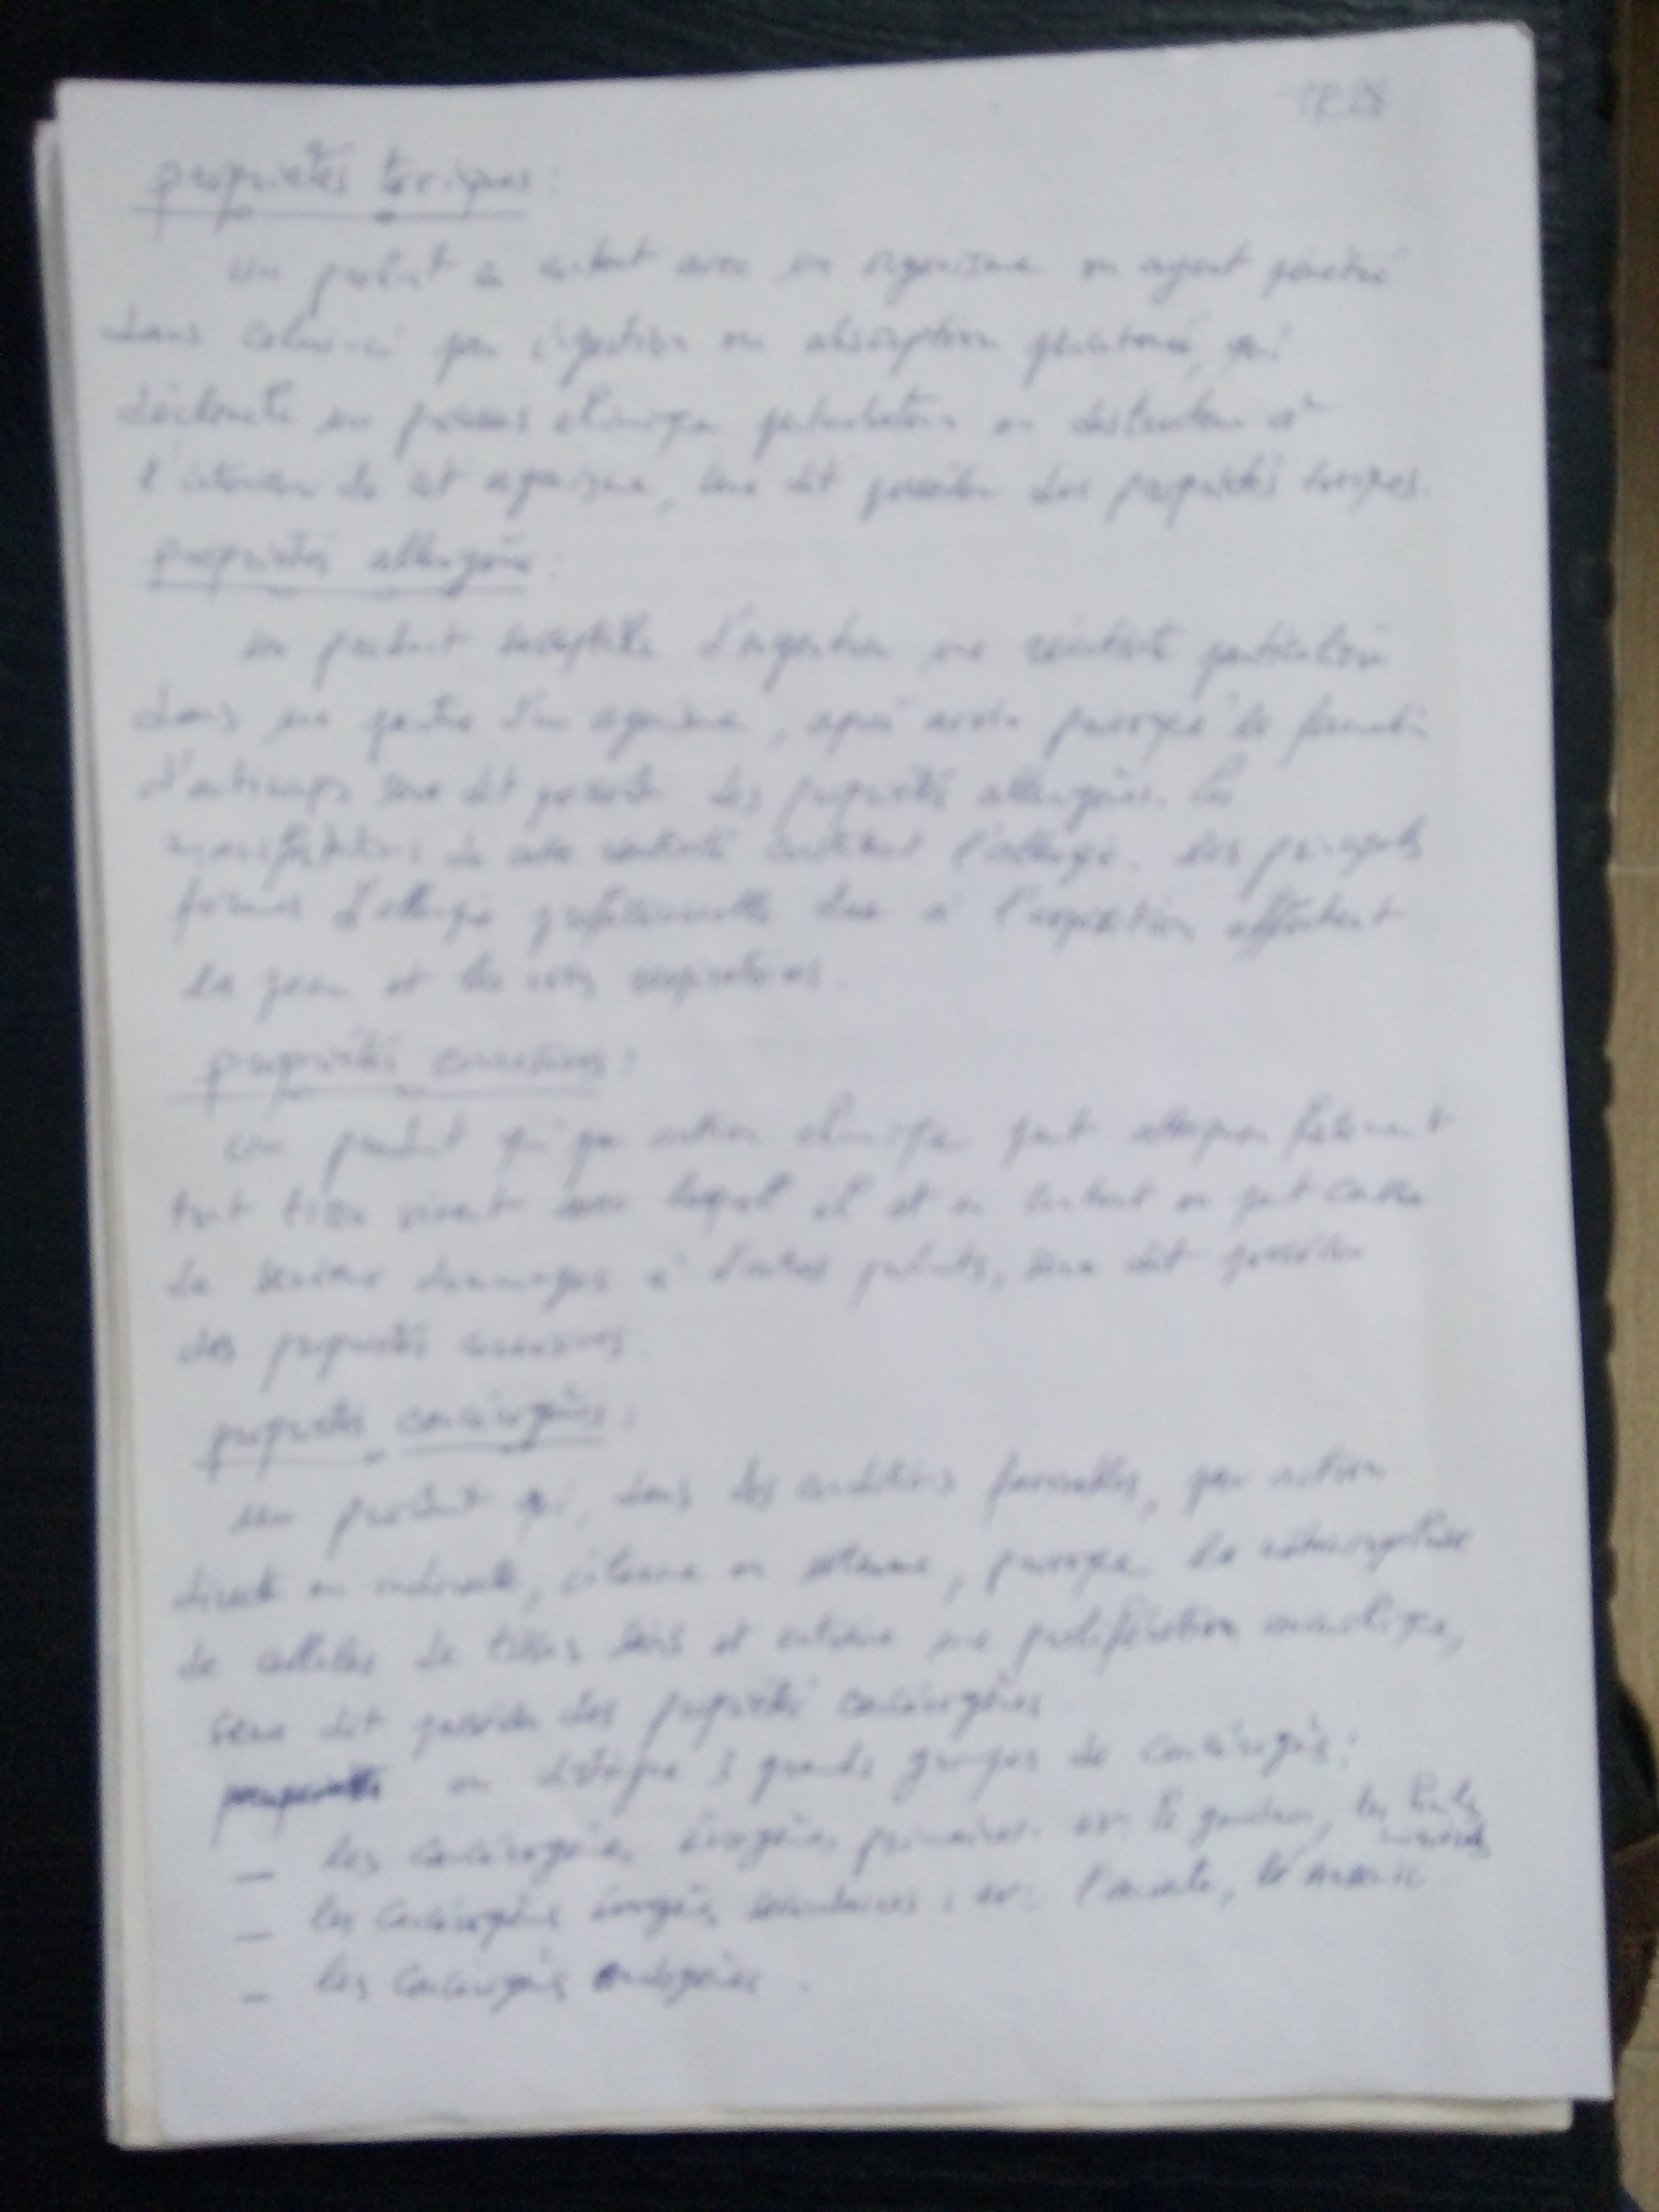 propriétés toxiques :
un produit en contact avec un organisme ou ayant pénétré
dans celui-ci par ingestion ou absorption percutanée, qui
déclenche un processus chimique perturbateur ou destructeur à
l'intérieur de cet organisme, sera dit posséder des propriétés toxiques.
propriétés allergènes :
un produit susceptible une réactivité particulière
dans une partie d'un organisme, après avoir provoqué la formation
d'anticorps sera dit posséder des propriétés allergènes. Les
manifestations de cette constituent l'allergie. les principales
formes d'allergie professionnelle due à affectent
la peau et les voies respiratoires.
propriétés corrosives :
un produit qui par action chimique peut attaquer fortement
tout tissu vivant avec lequel il est en contact ou peut causer
de sérieux dommages à d'autres produits, sera dit posséder
des propriétés corrosives.
propriétés cancérogènes :
un produit qui, dans des conditions favorables, par action
directe ou indirecte, interne ou externe, provoque la métamorphose
de cellules de tissus sains et entraîne une prolifération anarchique,
sera dit posséder des propriétés cancérogènes.
on distingue 3 grands groupes de cancérogènes :
– les cancérogènes exogènes primaires. ex : le goudron, les huiles
minérales
– les cancérogènes exogènes secondaires : ex : l'amiante, le
– les cancérogènes endogènes.